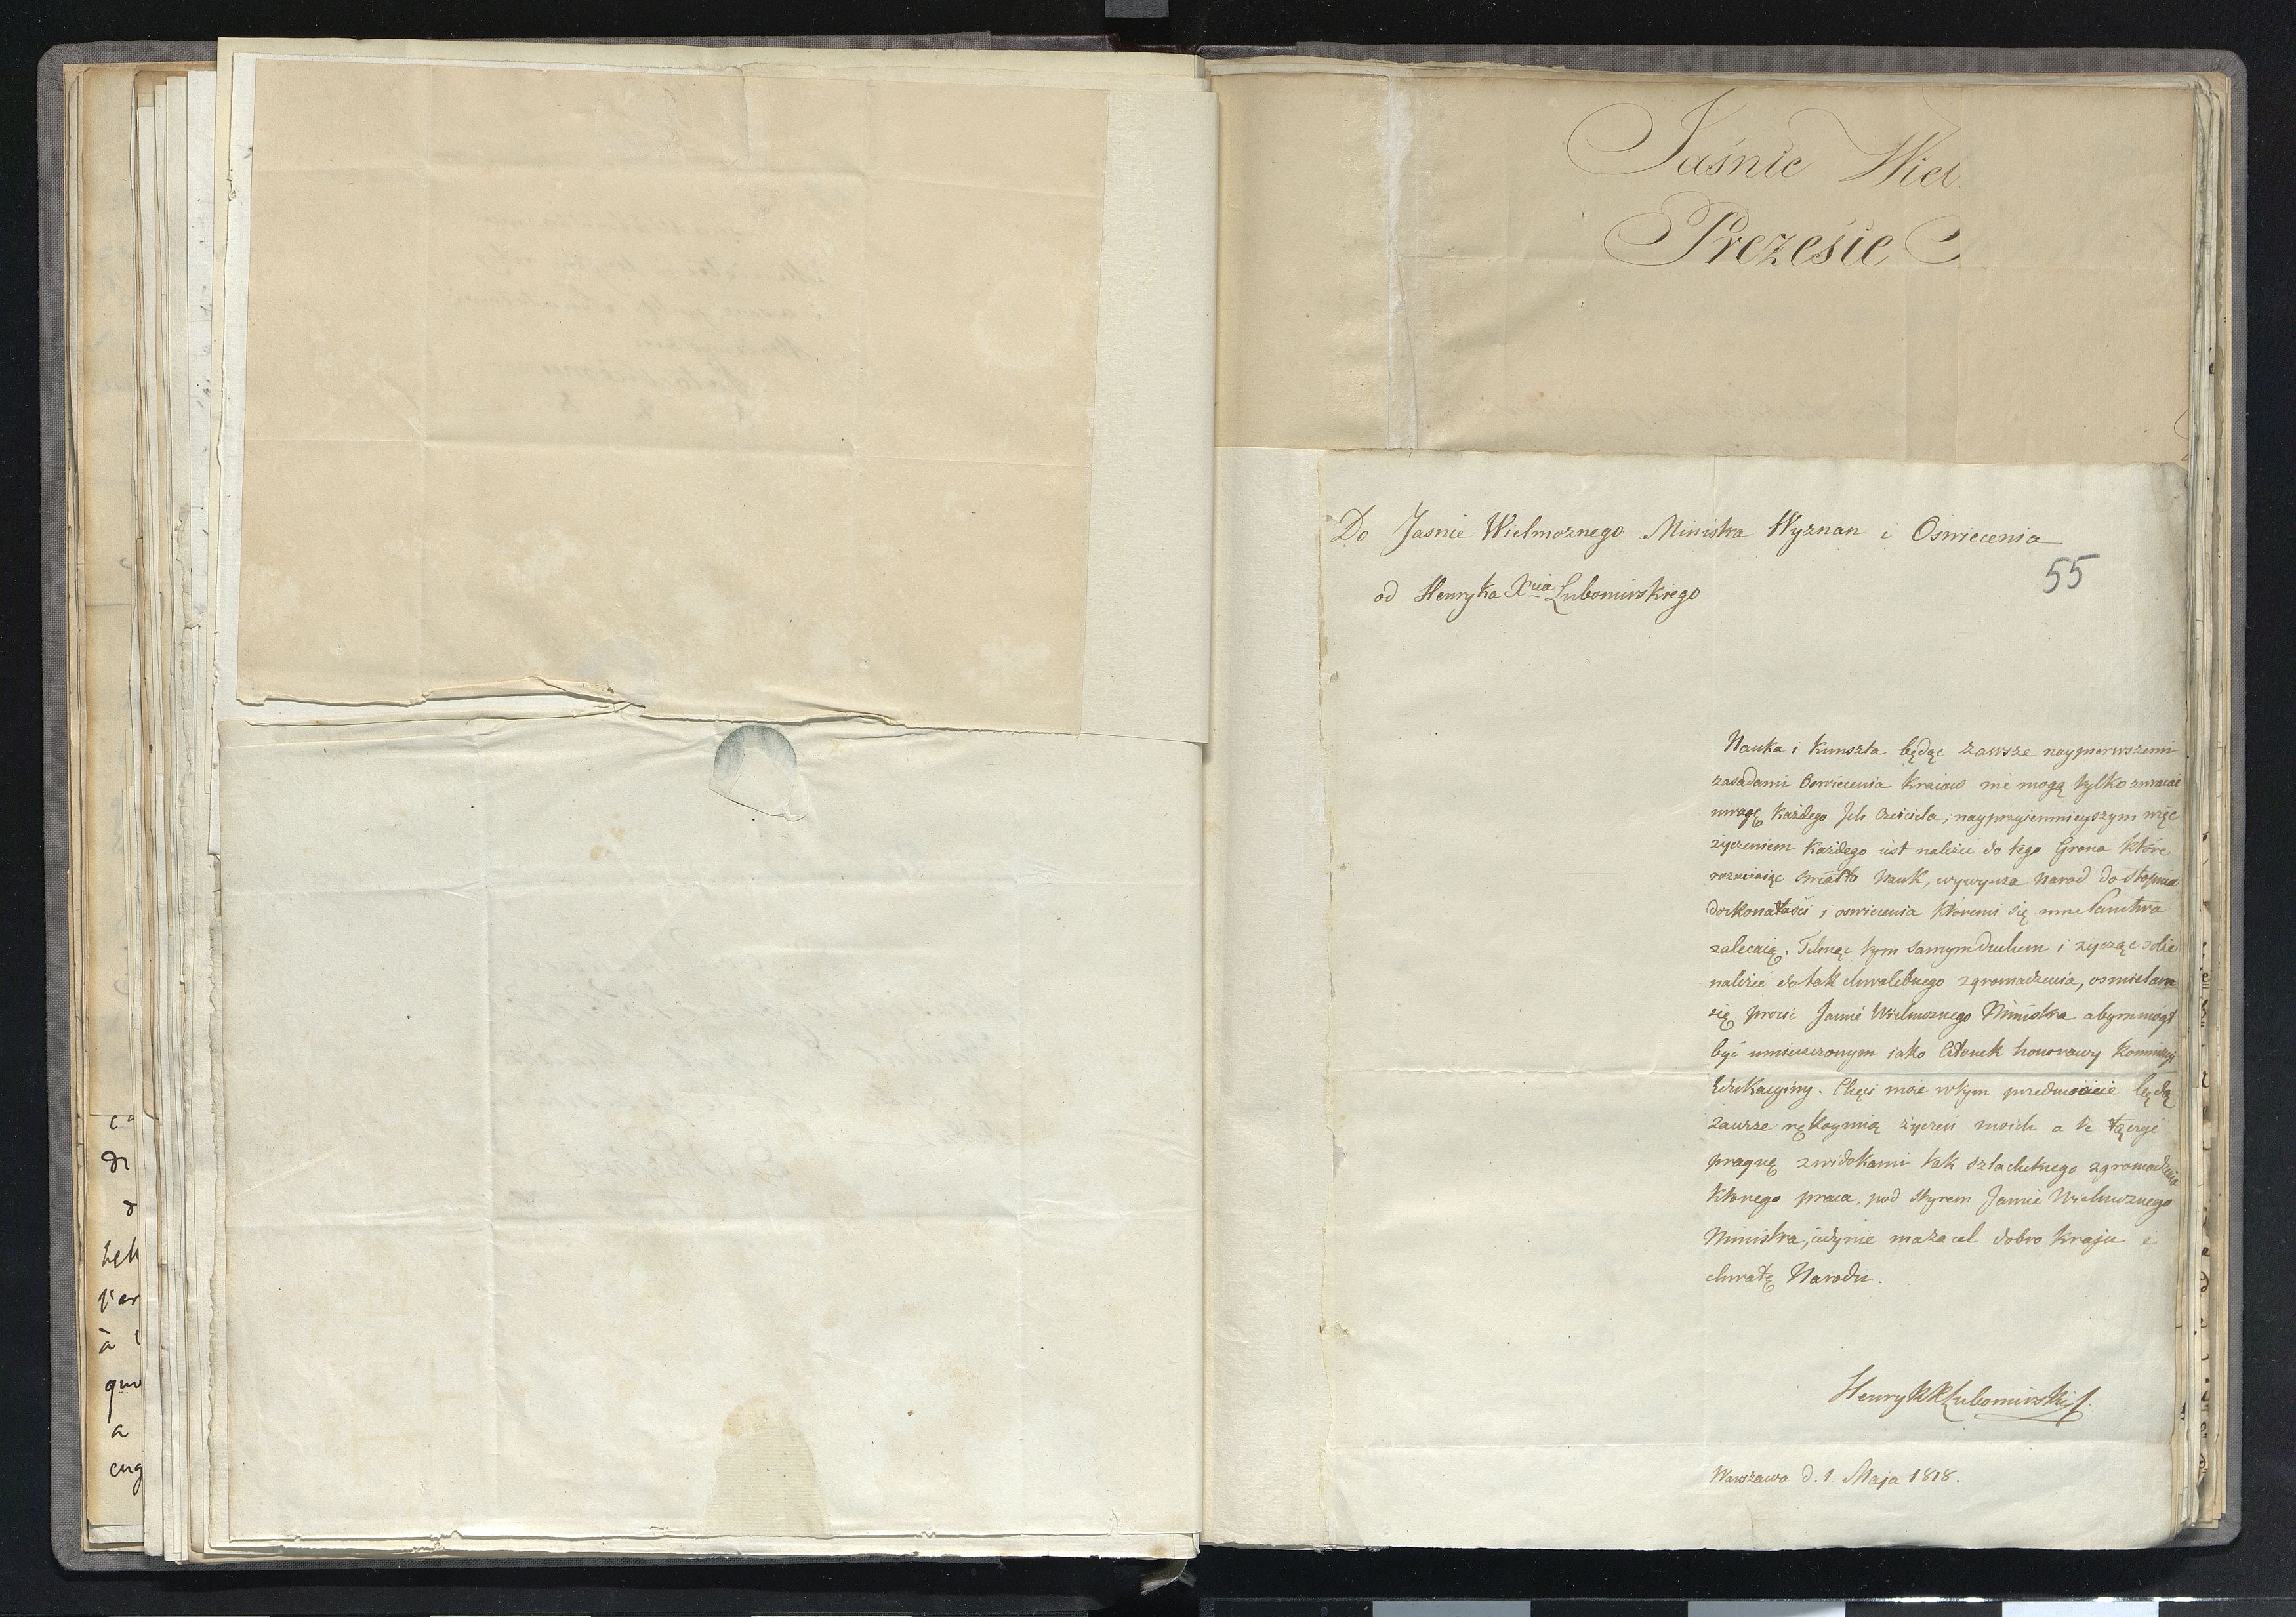 Jaśnie Wiel
Prezesie
Do Jasnie Wielmoznego Ministra Wyznan i Oswiecenia
55
od Henryka Xcia Lubomirskiego
Nauka i Kunszta będąc zawsze naypierwszemi
zasadami Oswiecenia kraiow nie mogą tylko zwracac
uwagę każdego Jch Czciciela; nayprzyiemnieyszym więc
życzeniem każdego iest należec do tego Grona które
swiatło Nauk, wywyzsza Narod do stopnia
doskonałosci i oswiecenia ktoremi się inne Panstwa
zalecaią. Tchnąc tym samym duchem i zycząc sobie
należeć do tak chwalebnego zgromadzenia, osmielam
się prosić Jasnie Wielmoznego Ministra abym mógł
być umieszczonym iako Członek honorowy Kommissyi
Edukacyiny. Chęci moie w tym przedmiocie będą
zawsze rękoymią życzeń moich a te łączyć
pragnę z widokami tak szlachetnego zgromadzenia
którego praca, pod styrem Jasnie Wielmoznego
Ministra, iedynie ma za cel dobro Kraju i
chwałę Narodu.
Henryk X Lubomirski
Warszawa d. 1. Maja 1818.
c
di
d
à
a